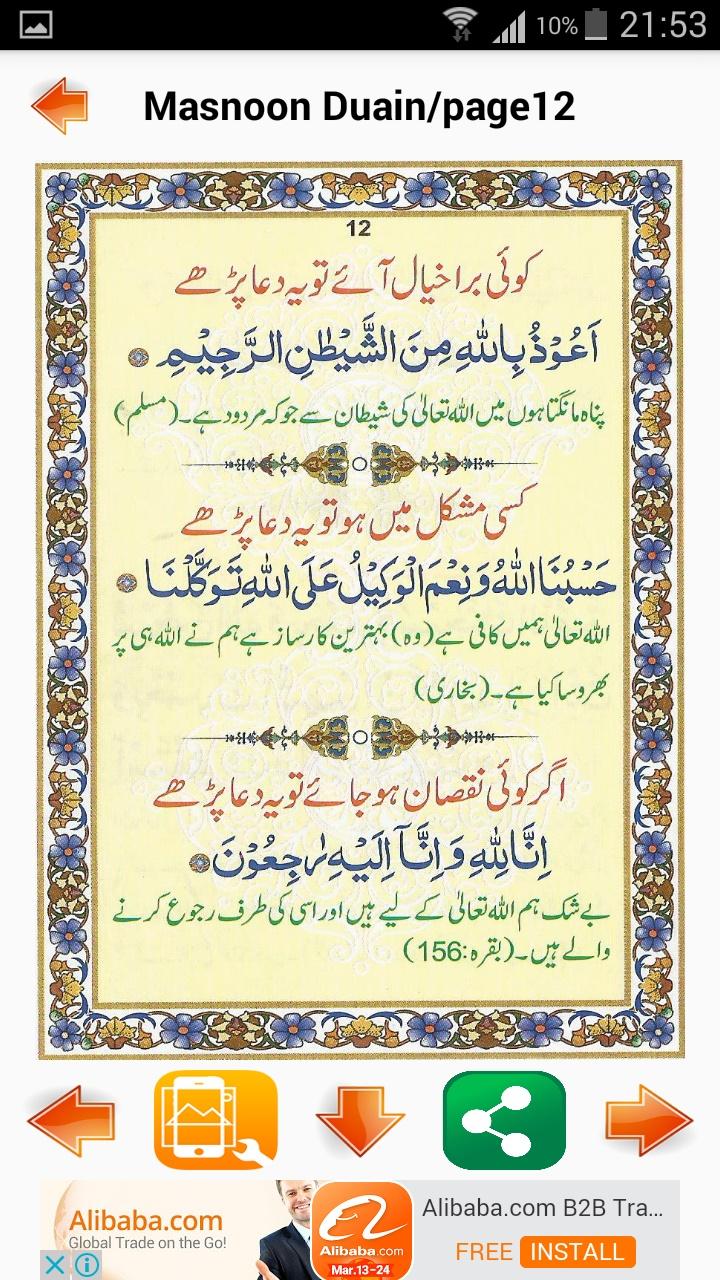 10% 21:53
Masnoon Duain/page12
12
کوئی برا خیال آئے تو یہ دعا پڑھے
اَعُوْذُ بِاللّٰهِ مِنَ الشَّيْطٰنِ الرَّجِيْمِ
پناہ مانگتا ہوں میں اللہ تعالیٰ کی شیطان سے جو کہ مردود ہے۔(مسلم)
کسی مشکل میں ہو تو یہ دعا پڑھے
حَسْبُنَا اللّٰهُ وَنِعْمَ الْوَكِيْلُ عَلَى اللّٰهِ تَوَكَّلْنَا
اللہ تعالیٰ ہمیں کافی ہے (وہ) بہترین کارساز ہے ہم نے اللہ ہی پر
بھروسا کیا ہے۔(بخاری)
اگر کوئی نقصان ہو جائے تو یہ دعا پڑھے
اِنَّا لِلّٰهِ وَاِنَّآ اِلَيْهِ رٰجِعُوْنَ
بے شک ہم اللہ تعالیٰ کے لیے ہیں اور اسی کی طرف رجوع کرنے
والے ہیں۔(بقرہ:156)
Alibaba.com
Global Trade on the Go!
Alibaba.com
Mar.13-24
Alibaba.com B2B Tra...
FREE INSTALL